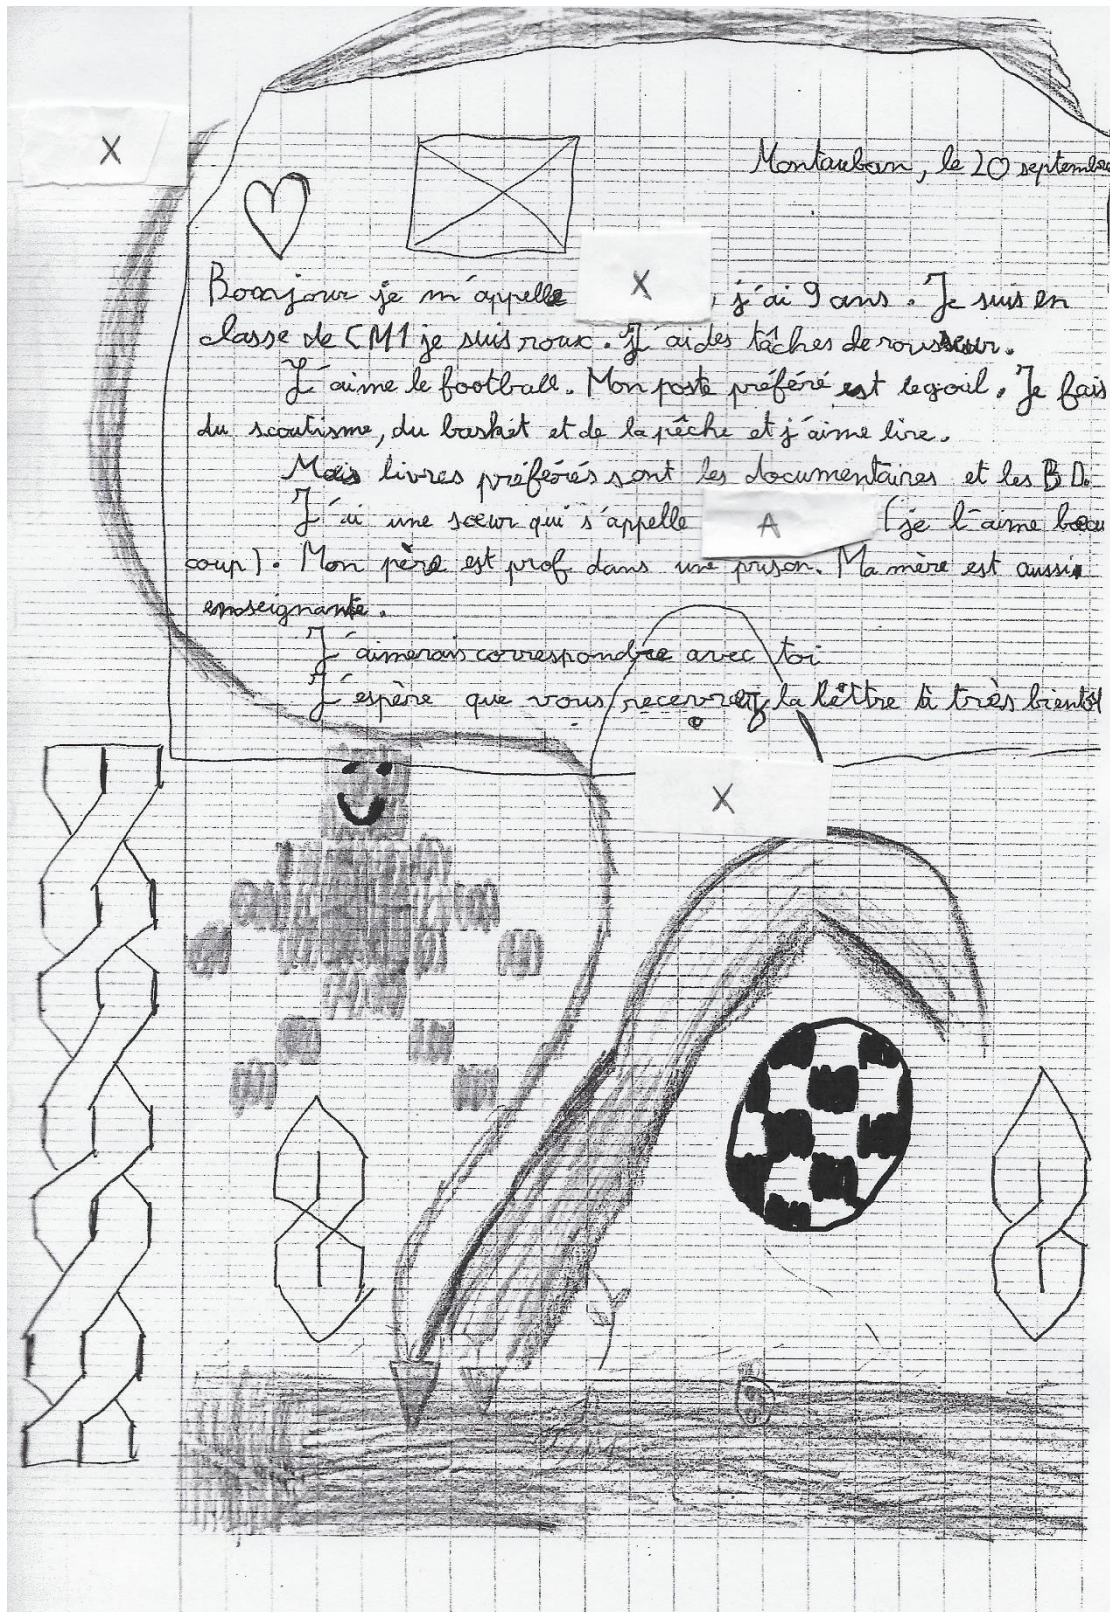 X
Montauban, le 20 septembre
Bonjour je m'appelle X, j'ai 9 ans. Je suis en
classe de CM1 je suis roux. J'ai des tâches de rousseur.
J'aime le football. Mon poste préféré est le goil. Je fais
du scoutisme, du basket et de la pêche et j'aime lire.
Mais livres préférés sont les documentaires et les BD.
J'ai une sœur qui s'appelle A (je l'aime beau
coup). Mon père est prof dans une prison. Ma mère est aussi
enseignante.
J'aimerais correspondre avec toi
J'espère que vous recevrez la lèttre à très bientôt
X